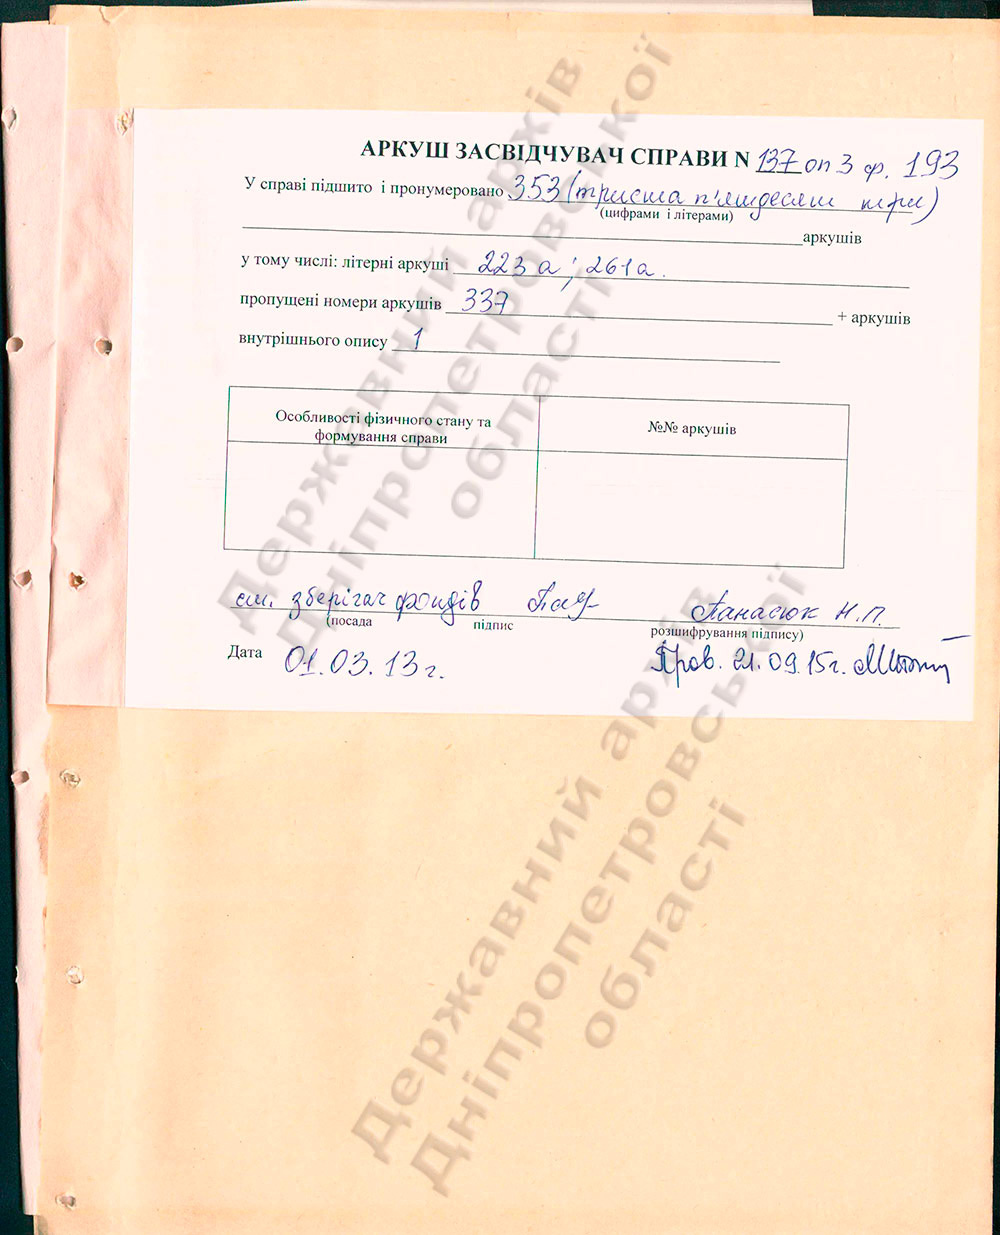 АРКУШ ЗАСВІДЧУВАЧ СПРАВИ N 137 оп 3 ф. 193
У справі підшито і пронумеровано 353 (триста п'ятдесят три)
(цифрами і літерами)
аркушів
у тому числі: літерні аркуші 223 а; 261а.
пропущені номери аркушів 337 + аркушів
внутрішнього опису 1
Особливості фізичного стану та
формування справи
№№ аркушів
ст. зберігач фондів Панасюк Н.П.
(посада підпис розшифрування підпису)
Дата 01.03.13г.
Пров. 21.09.15г.
Державний архів
Дніпропетровської
області
Державний архів
Дніпропетровської
області